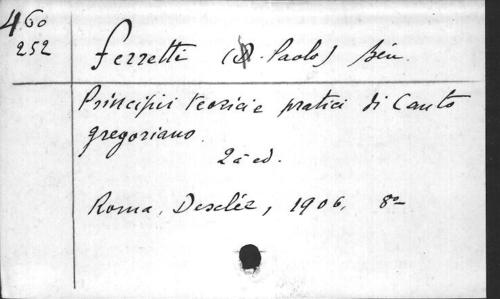 460
252
Ferretti (D. Paolo) Ben.
Principii teorici e pratici di Canto
gregoriano.
2a ed.
Roma, Desclée, 1906, 8º